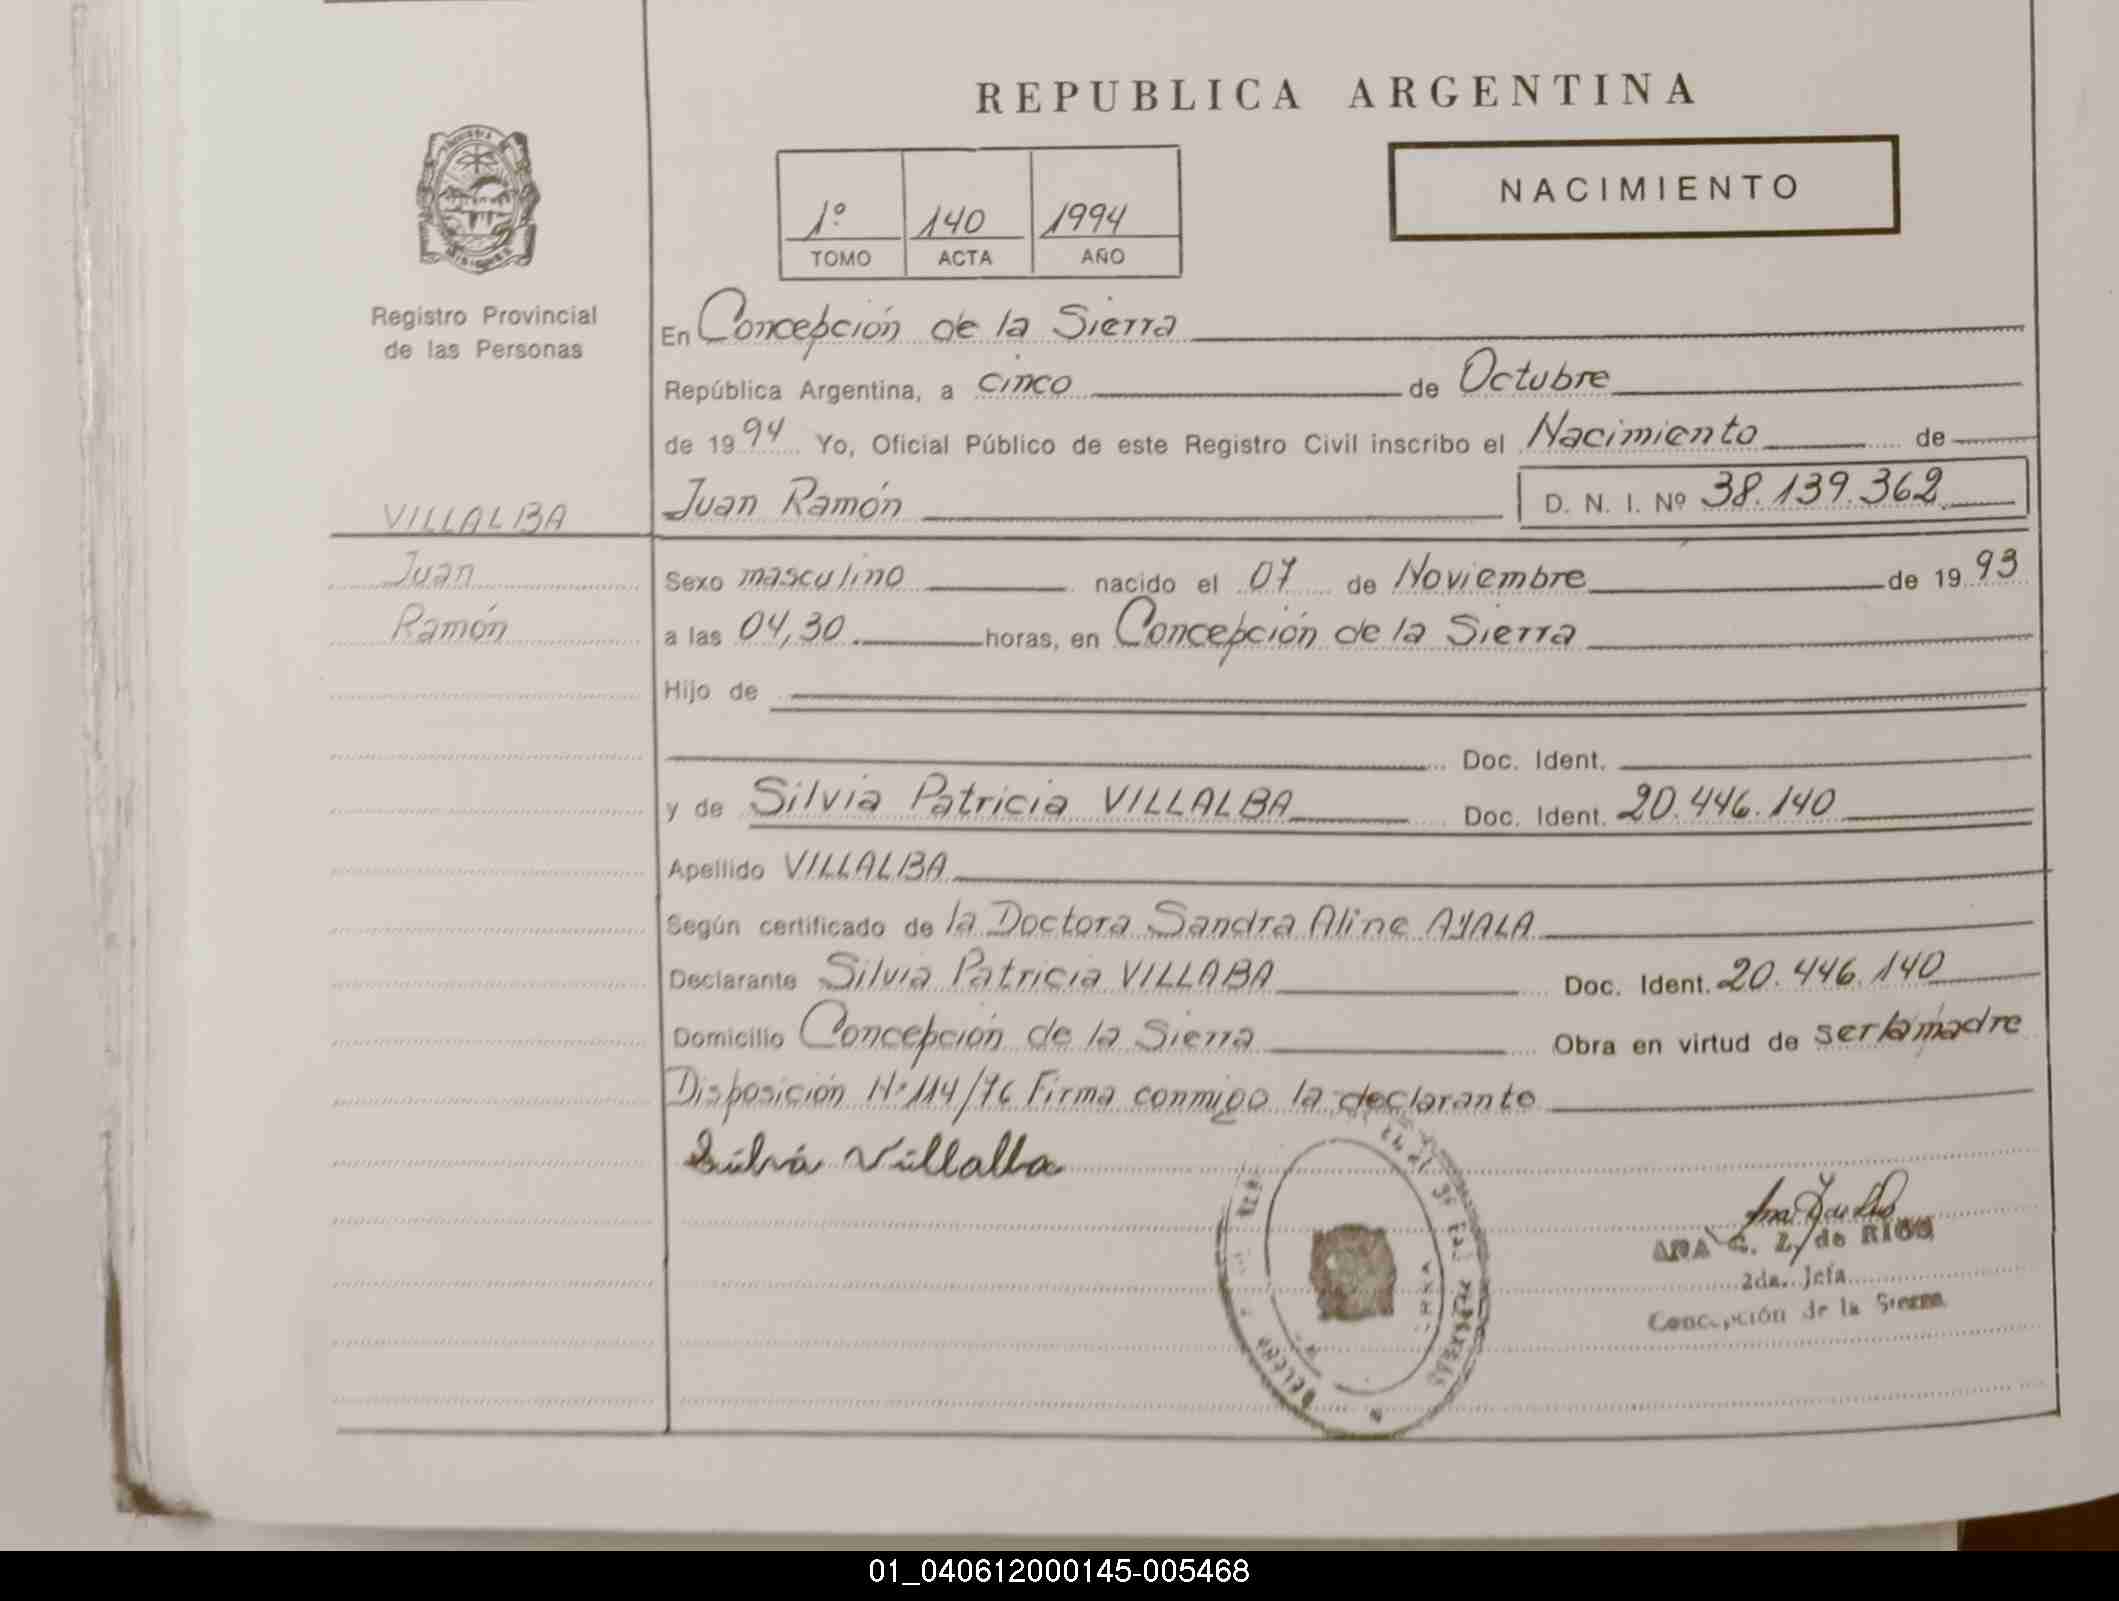 REPUBLICA ARGENTINA
NACIMIENTO
1º 140 1994
TOMO ACTA AÑO
Registro Provincial
de las Personas
En Concepción de la Sierra
República Argentina, a cinco de Octubre
de 1994 Yo, Oficial Público de este Registro Civil inscribo el Nacimiento de
VILLALBA
Juan Ramón D. N. I. Nº 38.139.362
Juan
Sexo masculino nacido el 07 de Noviembre de 1993
Ramón
a las 04,30 horas, en Concepción de la Sierra
Hijo de
Doc. Ident.
y de Silvia Patricia VILLALBA Doc. Ident. 20.446.140
Apellido VILLALBA
Según certificado de la Doctora Sandra Aline AYALA
Declarante Silvia Patricia VILLABA Doc. Ident. 20.446.140
Domicilio Concepción de la Sierra Obra en virtud de ser la madre
Disposición Nº 114/76 Firma conmigo la declarante
Silvia Villalba
ANA G. Z. de RIOS
2da. Jefa
Concepción de la Sierra
01_040612000145-005468